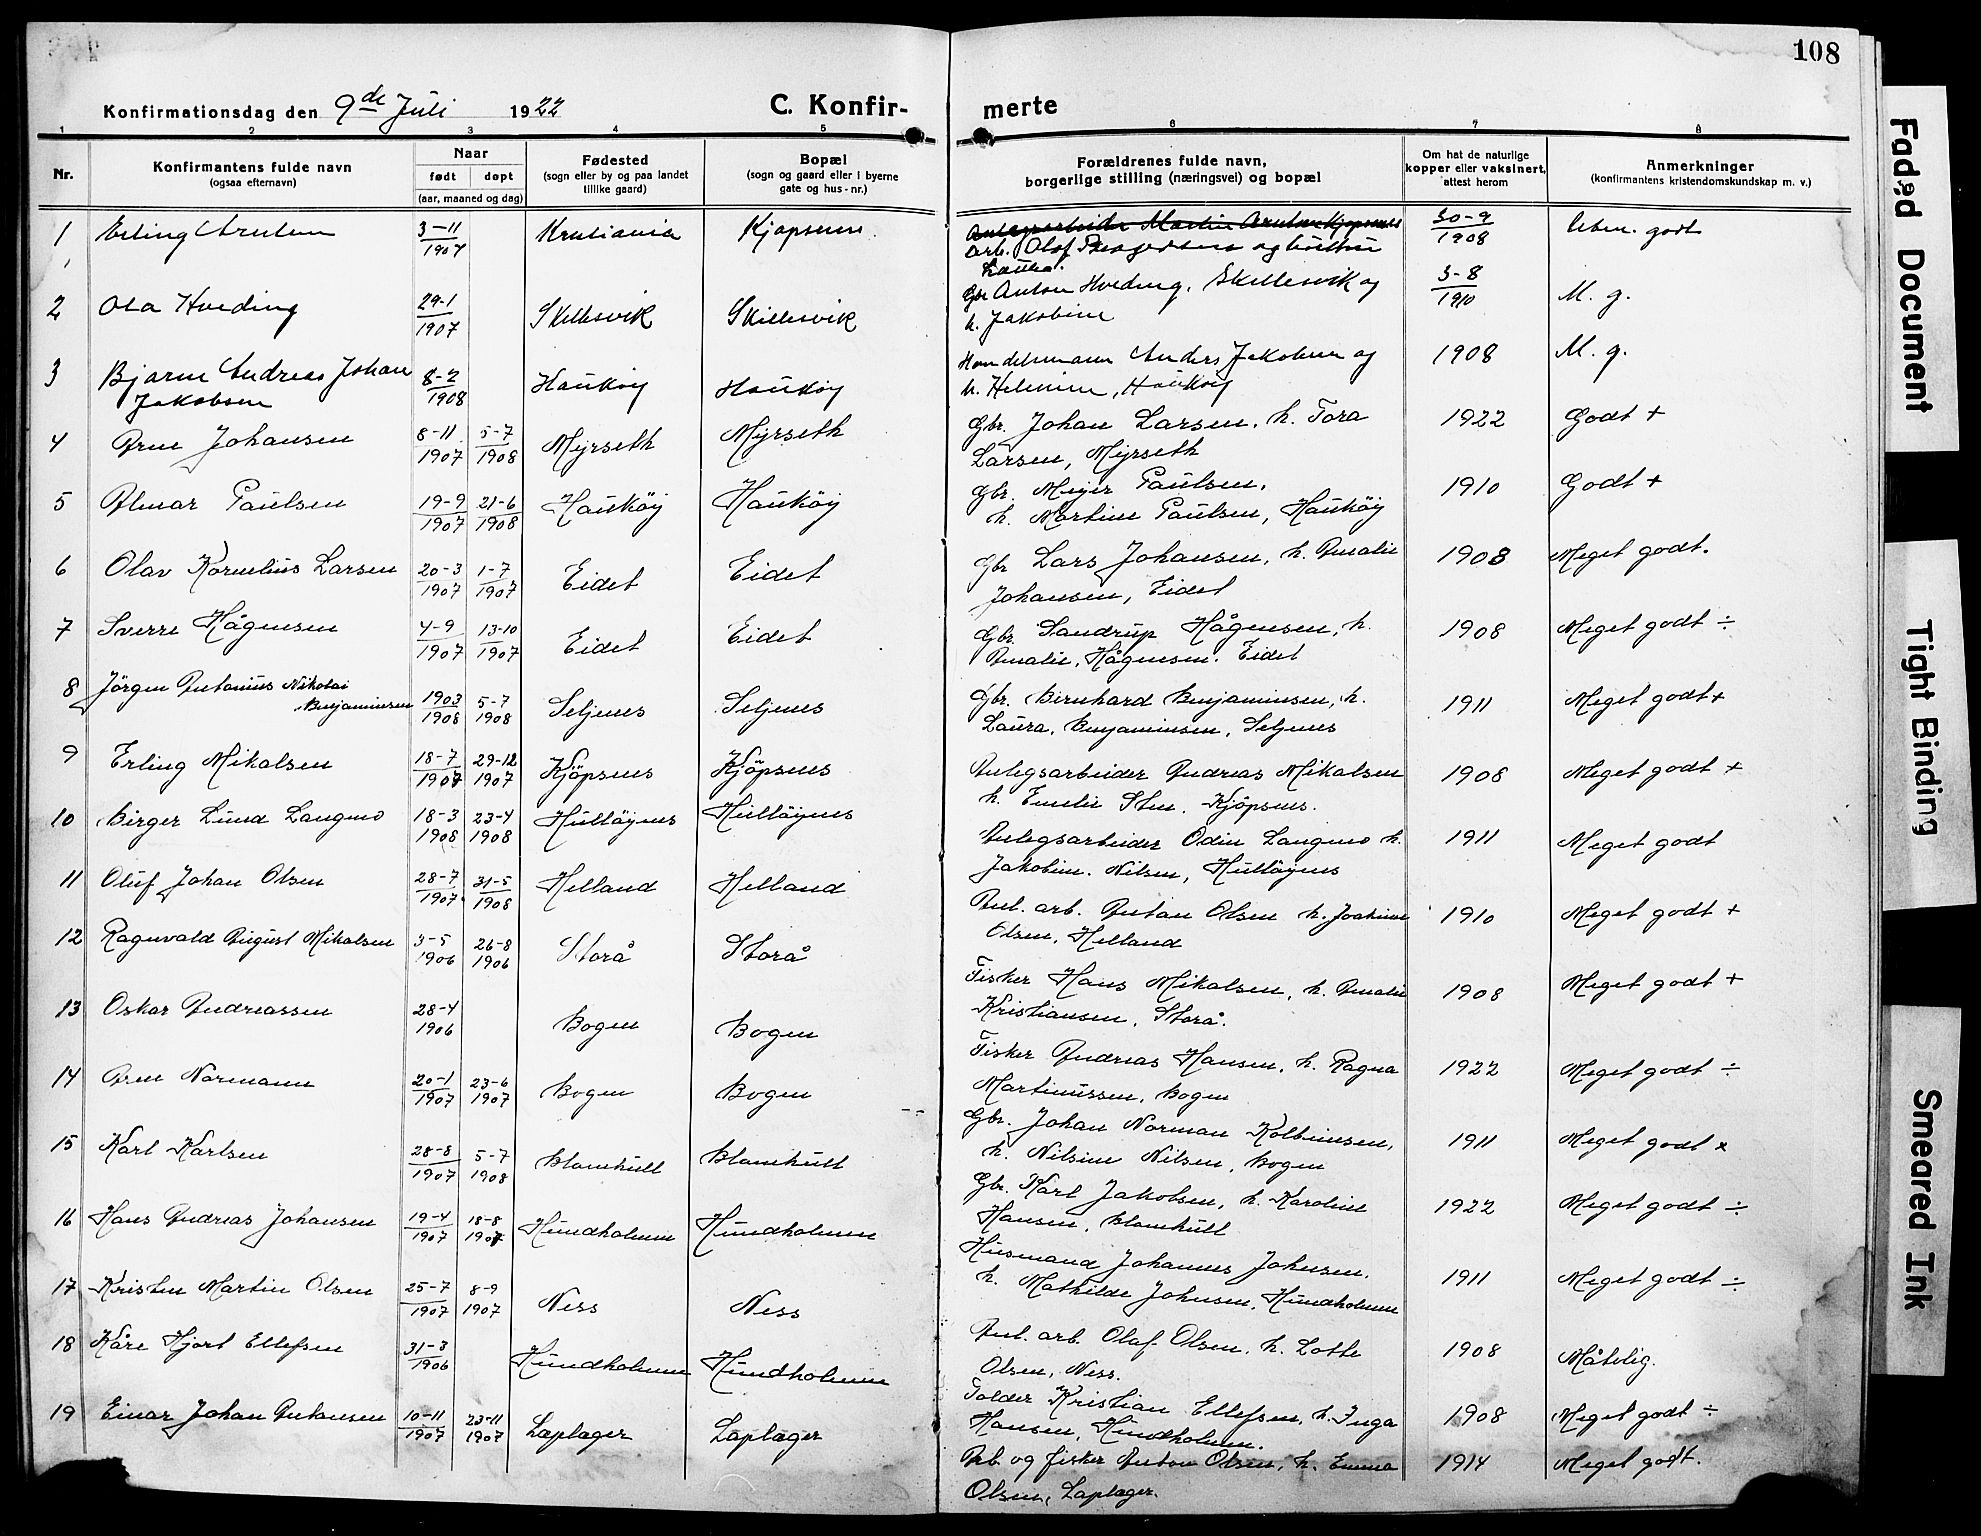 108
Konfirmationsdag den 9de Juli 1922 C. Konfirmerte
1 2 3 4 5 6 7 8
Nr.
Konfirmantens fulde navn
(ogsaa efternavn)
Naar
født døpt
(aar, maaned og dag)
Fødested
(sogn eller by og paa landet
tillike gaard)
Bopæl
(sogn og gaard eller i byerne
gate og hus-nr.)
Forældrenes fulde navn,
borgerlige stilling (næringsvei) og bopæl
Om hat de naturlige
kopper eller vaksinert,
attest herom
Anmerkninger
(konfirmantens kristendomskundskap m. v.)
1 Erling Arntsen 3-11 1907 Kristiania Kjøpsnes
arb. Olof og hustru
30-9 1908 godt
2 Ola Hveding 29-1 1907 Skillesvik Skillesvik
Gbr Anton Hveding, Skillesvik og
h. Jakobine
3-8 1910 M. g.
3 Bjarne Andreas Johan
Jakobsen 8-2 1908 Haukøy Haukøy
Handelsmann Anders Jakobsen og
h. Helmine, Haukøy
1908 M. g.
4 Arne Johansen 8-11 1907 5-7 1908 Myrseth Myrseth
Gbr. Johan Larsen, h. Tora
Larsen, Myrseth
1922 Godt +
5 Almar Paulsen 19-9 1907 21-6 1908 Haukøy Haukøy
Gbr. Meyer Paulsen,
h. Martine Paulsen, Haukøy
1910 Godt +
6 Olav Kornelius Larsen 20-3 1907 1-7 1907 Eidet Eidet
Gbr Lars Johansen, h. Amalie
Johansen, Eidet
1908 Meget godt.
7 Sverre Hågensen 4-9 1907 13-10 1907 Eidet Eidet
Gbr. Sandrup Hågensen, h.
Amalie, Hågensen. Eidet
1908 Meget godt ÷
8 Jörgen Antonius Nikolai
Benjaminsen 1903 1908 5-7 1908 Seljenes Seljenes
Gbr. Bernhard Benjaminsen, h.
Laura, Benjaminsen, Seljenes
1911 Meget godt +
9 Erling Mikalsen 18-7 1907 29-12 1907 Kjöpsnes Kjöpsnes
Anlegsarbeider Andreas Mikalsen
h. Emelie Sten. Kjöpsnes.
1908 Meget godt +
10 Birger Lund Langmo 18-3 1908 23-4 1908 Hulløynes Hulløynes
Anlegsarbeider Odin Langmo h.
Jakobine. Nilsen, Hulløynes
1911 Meget godt
11 Oluf Johan Olsen 28-7 1907 31-5 1908 Helland Helland
Anl. arb. Antan Olsen h. Joakime
Olsen, Helland
1910 Meget godt +
12 Ragnvald August Mikalsen 3-5 1906 26-8 1906 Storå Storå
Fisker Hans Mikalsen, h. Amalie
Kristiansen, Storå.
1908 Meget godt +
13 Oskar Andreassen 28-4 1906 Bogen Bogen
Fisker Andreas Hansen, h. Ragna
Martinussen, Bogen
1922 Meget godt ÷
14 Arne Normann 20-1 1907 23-6 1907 Bogen Bogen
Gbr. Johan Norman Kolbeinsen,
h. Nilsine Nilsen, Bogen
1911 Meget godt x
15 Karl Karlsen 28-8 1907 5-7 1908 Blomhull Blomhull
Gbr. Karl Jakobsen, h. Karoline
Hansen, Blomhull
1922 Meget godt ÷
16 Hans Andreas Johansen 19-4 1907 18-8 1907 Hundholmen Hundholmen
Husmand Johannes Johnsen.
h. Mathilde Johnsen, Hundholmen
1911 Meget godt ÷
17 Kristen Martin Olsen 25-7 1907 8-9 1907 Ness Ness
Anl. arb. Olaf Olsen, h. Lotte
Olsen, Ness.
1908 Måtelig.
18 Kåre Hjort Ellefsen 31-3 1906 Hundholmen Hundholmen
Tolder Kristian Ellefsen, h. Inga
Hansen, Hundholmen.
1908 Meget godt ÷
19 Einar Johan Antonsen 10-11 1907 23-11 1907 Laplæger Laplæger
Arb. og fisker Anton Olsen, h. Emma
Olsen, Laplæger.
1914 Meget godt.
Faded Document
Tight Binding
Smeared Ink